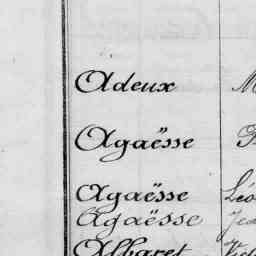 Adeux M
Agaësse
Agaësse Léo
Agaësse Jea
Albaret